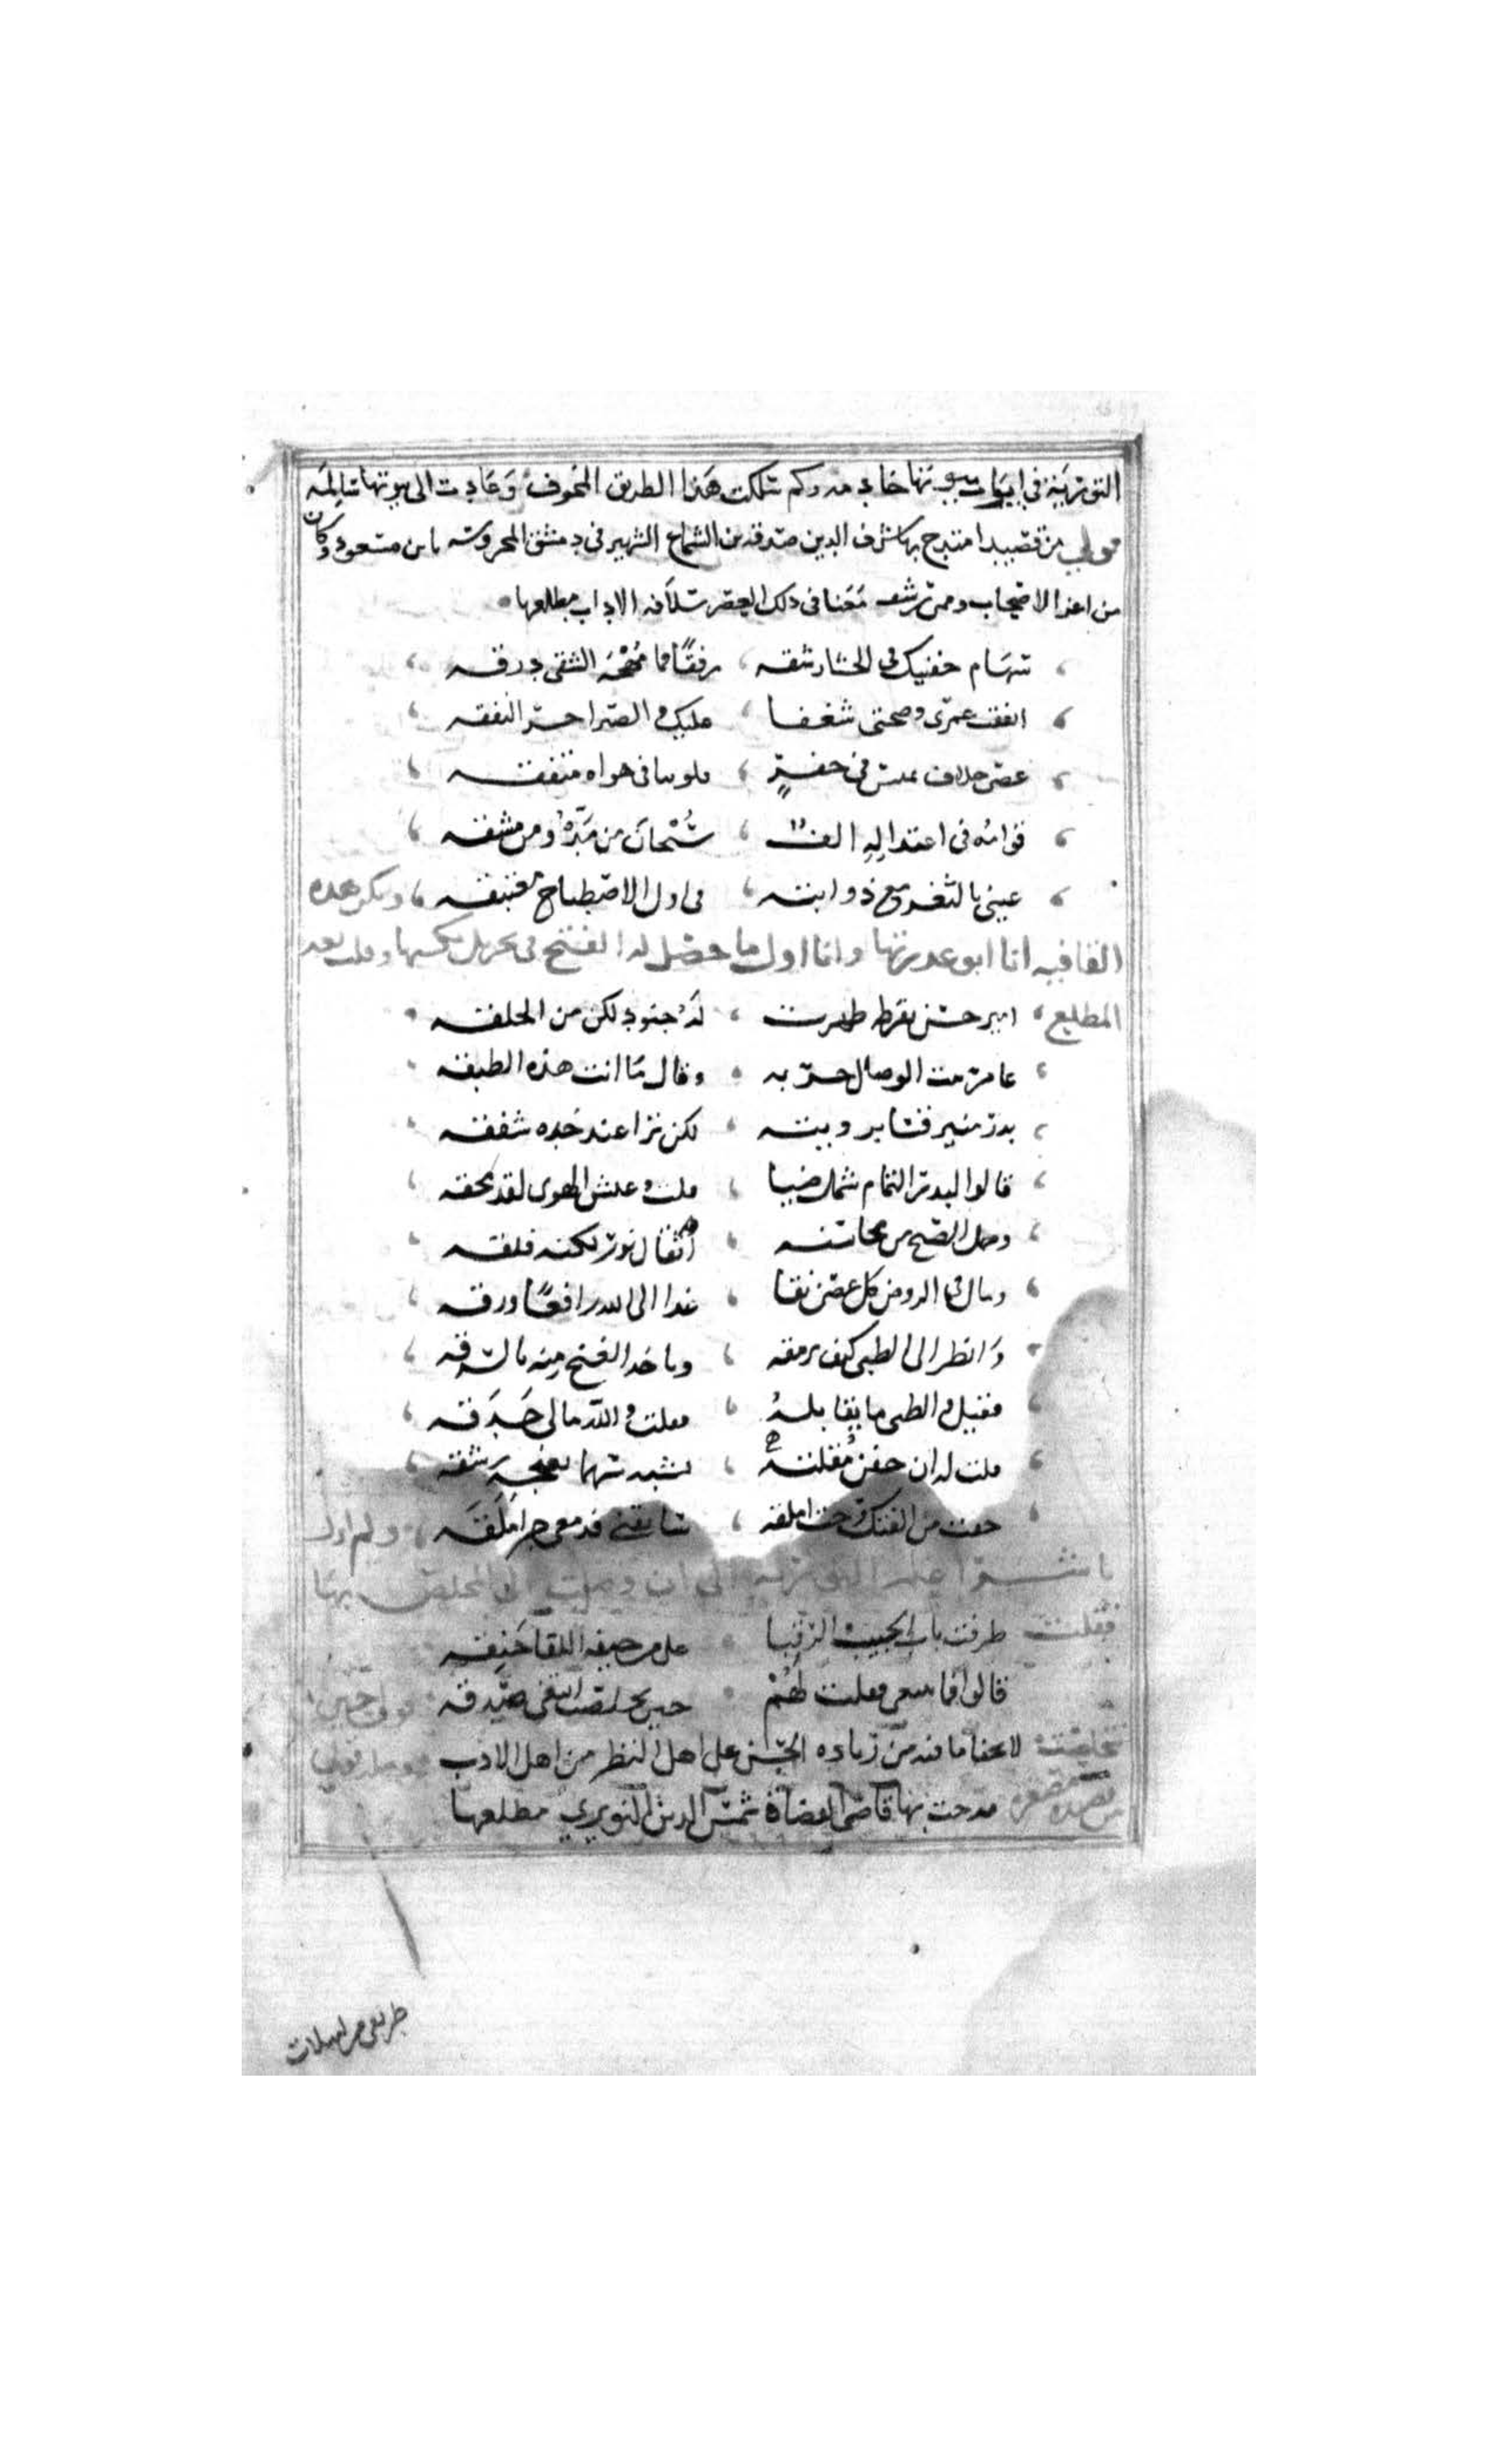 التورية في ابيات بيوتها خادمه وكم سلكت هذا الطريق المخوف وعادت الى بيوتها سالمه
قولي من قصيد امتدح بها شرف الدين صدقه بن الشماع الشهير في دمشق المحروسه بابن مسعود وكان
من اعز الاصحاب وممن ترشف معنا في ذلك العصر سلافه الاداب مطلعها
سهام جفنيك في الحشا رشقه رفقا فما مهجه الشقى درقه
انفقت عمرى وصحتى شغفا عليك والصبر اخر النفقه
غصن خلاف يميس في حفر قلوبنا في هواه متفقه
قوامه في اعتداله الف سبحان من مده ومن مشقه
عيني بالثغر مع ذوابته في اول الاصطباح مغتبقه ونكر هذه
القافيه انا ابو عذرتها وانا اول ما حصل له الفتح في وقلت بعد
المطلع امير حسن بقرطه ظهرت له جنود لكن من الحلقه
عامر بيت الوصال خر به وقال ما انت هذه الطبقه
بدر منير قسا برويته لكن ترا عند خده شفقه
قالوا البدر التمام شملت ضيا قلت وعلش الهوى لقد محقه
وصل الصبح من محاسنه اثقال نور لكنه فلقه
ومال في الروض كل غصن نقا غدا الى الله رافعا ورقه
وانظر الى الظبي كيف يرمقه وياخذ الغنج منه بالسرقه
فقيل والظبى ما يقابله فقلت والله مالى حدقه
قلت له ان جفن مقلته يشبه سهما بغنجه رشقه
خفت من الفتك رحت املقه سابقنى قد معى جرا ملقه ولم ازل
ناشرا علم التوريه الى ان وصلت الى المخلص بها
فقلت طرقت باب الحبيب الرقبا على من خيفه اللقا حنقه
قالوا فما تبتغى فقلت لهم حين تخلصت ابتغى صدقه
لا يخفا ما فيه من زياده الحسن على اهل النظر من اهل الادب
مدحت بها قاضى القضاة شمس الدين النويري مطلعها